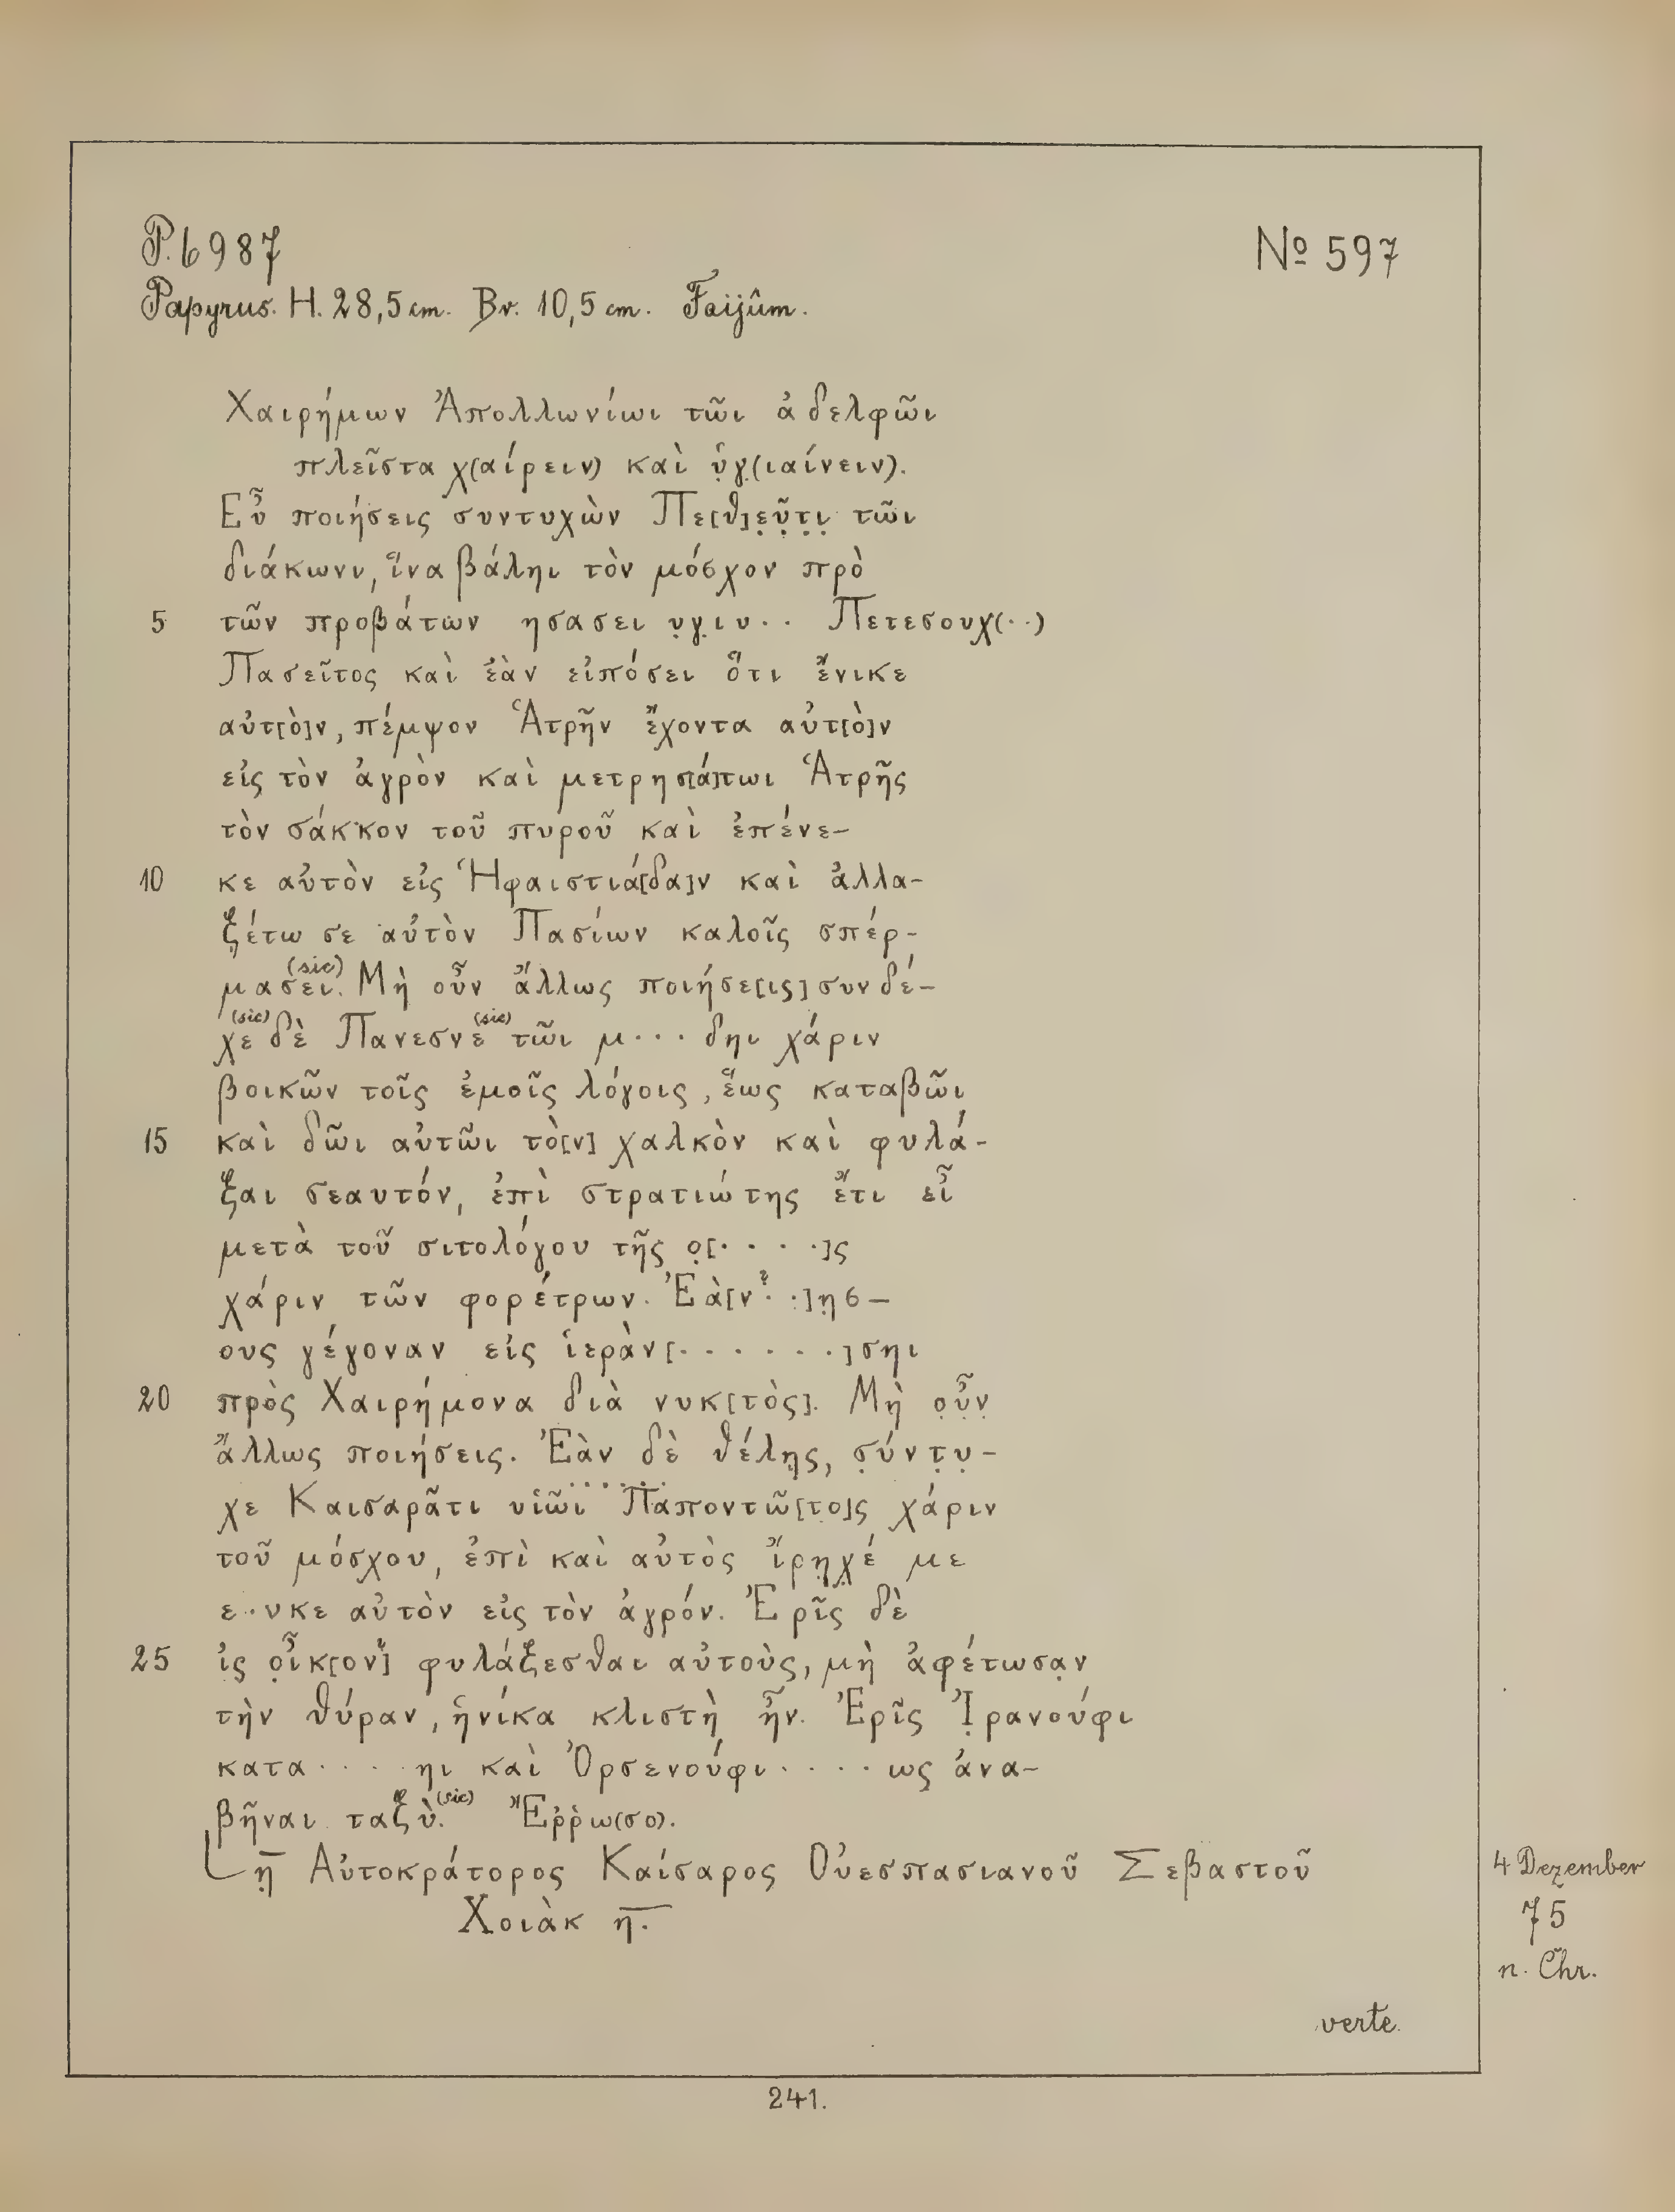 P. 6987
Nº 597
Papyrus. H. 28,5 cm. Br. 10,5 cm. Faijûm.
Χαιρήμων Ἀπολλωνίωι τῶι ἀδελφῶι
πλεῖστα χ(αίρειν) καὶ ὑ̣γ̣(ιαίνειν).
Εὖ ποιήσεις συντυχὼν Πε[θ]ε̣ῦ̣τ̣ι̣ τῶι
διάκωνι, ἵνα βάληι τὸν μόσχον πρὸ
5 τῶν προβάτων ησασει υ̣γ̣ιν·· Πετεσουχ(··)
Πασεῖτος καὶ ἐὰν εἰπόσει ὅτι ἔνικε
αὐτ[ὸ]ν, πέμψον Ἁτρῆν ἔχοντα αὐτ[ὸ]ν
εἰς τὸν ἀγρὸν καὶ μετρησ[ά]τωι Ἁτρῆς
τὸν σάκκον τοῦ πυροῦ καὶ ἐπένε-
10 κε αὐτὸν εἰς Ἡφαιστιά[δα]ν καὶ ἀλλα-
ξέτω σε αὐτὸν Πασίων καλοῖς σπέρ-
μασει. (sic) Μὴ οὖν ἄλλως ποιήσε[ις] συνδέ-
χε (sic) δὲ Πανεσνε (sic) τῶι μ··· δηι χάριν
βοικῶν τοῖς ἐμοῖς λόγοις, ἕως καταβῶι
15 καὶ δῶι αὐτῶι τὸ[ν] χαλκὸν καὶ φυλά-
ξαι σεαυτόν, ἐπὶ στρατιώτης ἔτι εἶ
μετὰ τοῦ σιτολόγου τῆς ο̣[····]ς
χάριν τῶν φορέτρων. Ἐὰ[ν?··]η̣σ-
ους γέγοναν εἰς ἱερὰν[·······]σηι
20 πρὸς Χαιρήμονα διὰ νυκ[τὸς]. Μὴ ο̣ὖ̣ν̣
ἄλλως ποιήσεις. Ἐὰν δὲ θέλη̣ς, σ̣ύντ̣υ̣-
χε Καισαρᾶτι υἱῶι Παποντῶ[το]ς χάριν
τοῦ μόσχου, ἐπὶ καὶ αὐτὸς ἴρη̣χ̣έ με
ε·νκε αὐτὸν εἰς τὸν ἀγρόν. Ἐρῖς δὲ
25 ἰς ο̣ἶκ[ον] φυλάξεσθαι αὐτοὺς, μὴ ἀφέτωσα̣ν
τὴν θύραν, ἡνίκα κλιστὴ ἦν. Ἐρῖς Ἰ̣ρανούφι
κατα····ηι καὶ Ὀρσενούφι····ως ἀνα-
βῆναι ταξὺ. (sic) Ἔῤῥω(σο).
L η̣̅ Αὐτοκράτορος Καίσαρος Οὐεσπασιανοῦ Σεβαστοῦ
Χοιὰκ η̅.
4 Dezember
75
n. Chr.
verte.
241.